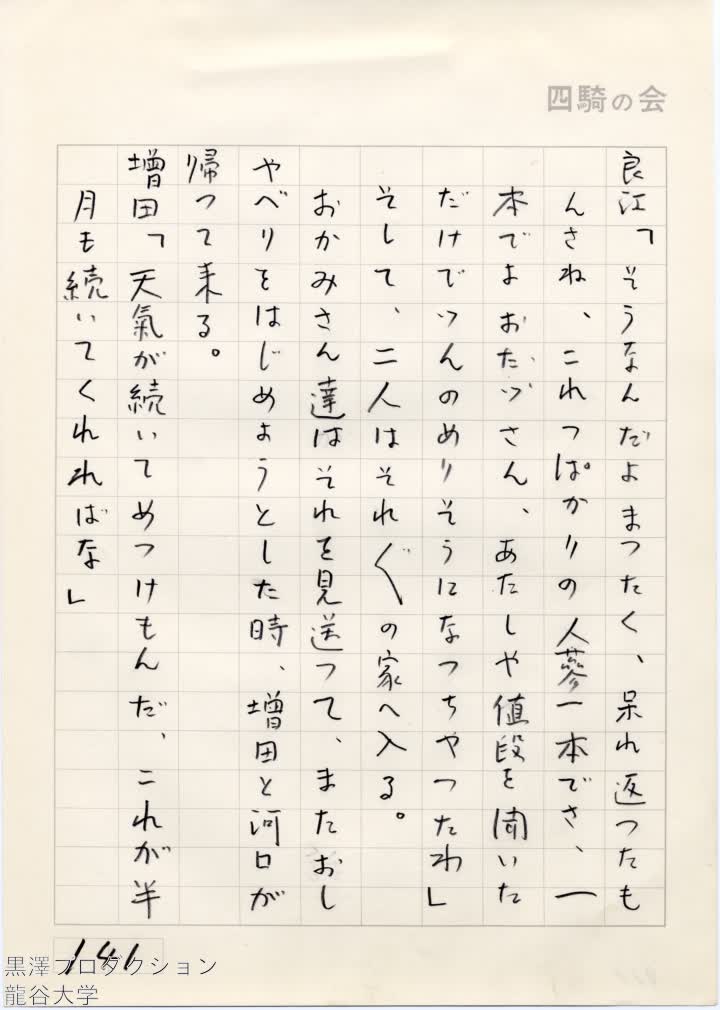 四騎の会
良江「そうなんだよまつたく、呆れ返つたも
んさね、これつぱかりの人蔘一本でさ、一
本でよおたづさん、あたしや値段を聞いた
だけでいんのめりそうになつちやつたわ」
そして、二人はそれ〲の家へ入る。
おかみさん達はそれを見送つて、またおし
やべりをはじめようとした時、増田と河口が
帰つて来る。
増田「天氣が続いてめつけもんだ、これが半
月も続いてくれればな」
141
黒澤プロダクション
龍谷大学